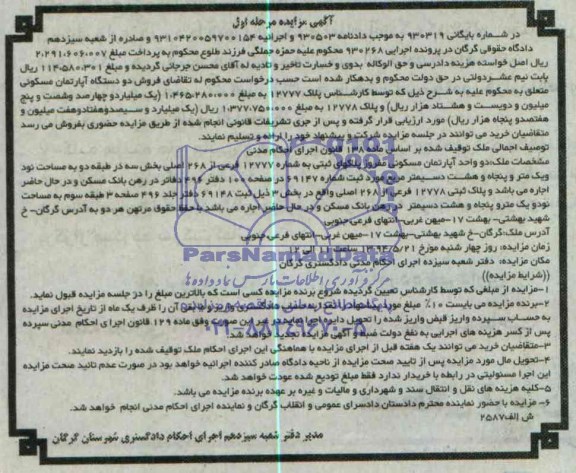 آگهی مزایده مرحله اول
در شماره بایگانی ۹۳۰۳۱۹ به موجب دادنامه ۹۳۰۵۰۳ و اجرائیه ۹۳۱۰۴۲۰۰۵۹۷۰۰۱۵۴ و صادره از شعبه سیزدهم
دادگاه حقوقی گرگان در پرونده اجرایی ۹۳۰۲۶۸ محکوم علیه حمزه جملگی فرزند طلوع محکوم به پرداخت مبلغ ۲،۲۹۱،۶۰۶،۰۰۷
ریال اصل خواسته هزینه دادرسی و حق الوکاله بدوی و خسارت تاخیر و تادیه له آقای محسن جرجانی گردیده و مبلغ ۱۱۴،۵۸۰،۳۰۱ ریال
بابت نیم عشر دولتی در حق دولت محکوم و بدهکار شده است حسب درخواست محکوم له تقاضای فروش دو دستگاه آپارتمان مسکونی
متعلق به محکوم علیه به شرح ذیل که توسط کارشناس پلاک ۱۲۷۷۷ به مبلغ ۱،۴۶۵،۲۸۰،۰۰۰ (یک میلیارد و چهارصد و شصت و پنج
میلیون و دویست و هشتاد هزار ریال) و پلاک ۱۲۷۷۸ به مبلغ ۱،۳۷۷،۷۵۰،۰۰۰ ریال (یک میلیارد و سیصد و هفتاد و هفت میلیون و
هفتصد و پنجاه هزار ریال) مورد ارزیابی قرار گرفته و پس از جری تشریفات قانونی انجام شده از طریق مزایده حضوری بفروش می رسد
متقاضیان خرید می توانند در جلسه مزایده شرکت و پیشنهاد خود را ارائه و تسلیم نمایند.
توصیف اجمالی ملک توقیف شده بر اساس ماده ۱۳۸ قانون اجرای احکام مدنی
مشخصات ملک: دو واحد آپارتمان مسکونی مفروز پلاکهای ثبتی به شماره ۱۲۷۷۷ فرعی از ۲۶۸ اصلی بخش سه در طبقه دو به مساحت نود
ویک متر و پنجاه و هشت دسیمتر مربع مورد ثبت شماره ۶۹۱۴۷ در صفحه ۱۱۰ دفتر ۴۹۶ دفاتر در رهن بانک مسکن و در حال حاضر
اجاره می باشد و پلاک ثبتی ۱۲۷۷۸ فرعی از ۲۶۸ اصلی واقع در بخش ۳ ذیل ثبت ۶۹۱۴۸ دفتر جلد ۴۹۶ صفحه ۳ طبقه سوم به مساحت
نود و یک متر و پنجاه و هشت دسیمتر در رهن بانک مسکن و در حال حاضر اجاره می باشد با حفظ حقوق مرتهن هر دو به آدرس گرگان- خ
شهید بهشتی- بهشت ۱۷- میهن غربی- انتهای فرعی جنوبی
آدرس ملک: گرگان- خ شهید بهشتی- بهشت ۱۷- میهن غربی- انتهای فرعی جنوبی
زمان مزایده: روز چهار شنبه مورخ ۱۳۹۴/۵/۲۱ ساعت ۱۱ الی ۱۲
مکان مزایده: دفتر شعبه سیزده اجرای احکام مدنی دادگستری گرگان
((شرایط مزایده))
۱-مزایده از مبلغی که توسط کارشناس تعیین گردیده شروع برنده مزایده کسی است که بالاترین مبلغ را در جلسه مزایده قبول نماید.
۲-برنده مزایده می بایست ۱۰٪ مبلغ مورد پیشنهاد را نقدا به حساب سپرده دادگستری واریز و مابقی آن را ظرف یک ماه از تاریخ اجرای مزایده
به حساب سپرده واریز فیش واریز شده را تحویل دایره اجرا نماید در غیر این صورت وفق ماده ۱۲۹ قانون اجرای احکام مدنی سپرده
پس از کسر هزینه های اجرایی به نفع دولت ضبط و آگهی مزایده تجدید خواهد شد.
۳-متقاضیان خرید می توانند یک هفته قبل از اجرای مزایده با هماهنگی این اجرای احکام ملک توقیف شده را بازدید نمایند.
۴-تحویل مال مورد مزایده پس از تایید صحت مزایده از ناحیه دادگاه صادر کننده اجرائیه خواهد بود در صورت عدم تائید صحت مزایده
این اجرا مسئولیتی در رابطه با خریدار ندارد فقط مبلغ تودیع شده عودت خواهد شد.
۵-کلیه هزینه های نقل و انتقال سند و شهرداری و مالیات و غیره بر عهده برنده مزایده می باشد.
۶- مزایده با حضور نماینده محترم دادستان دادسرای عمومی و انقلاب گرگان و نماینده اجرای احکام مدنی انجام خواهد شد.
ش الف: ۲۵۸۷
مدیر دفتر شعبه سیزدهم اجرای احکام دادگستری شهرستان گرگان
ParsNamadData
مرکز فرآوری اطلاعات پارس نماد داده ها
۰۲۱-۸۸۳۴۹۶۷۰-۵